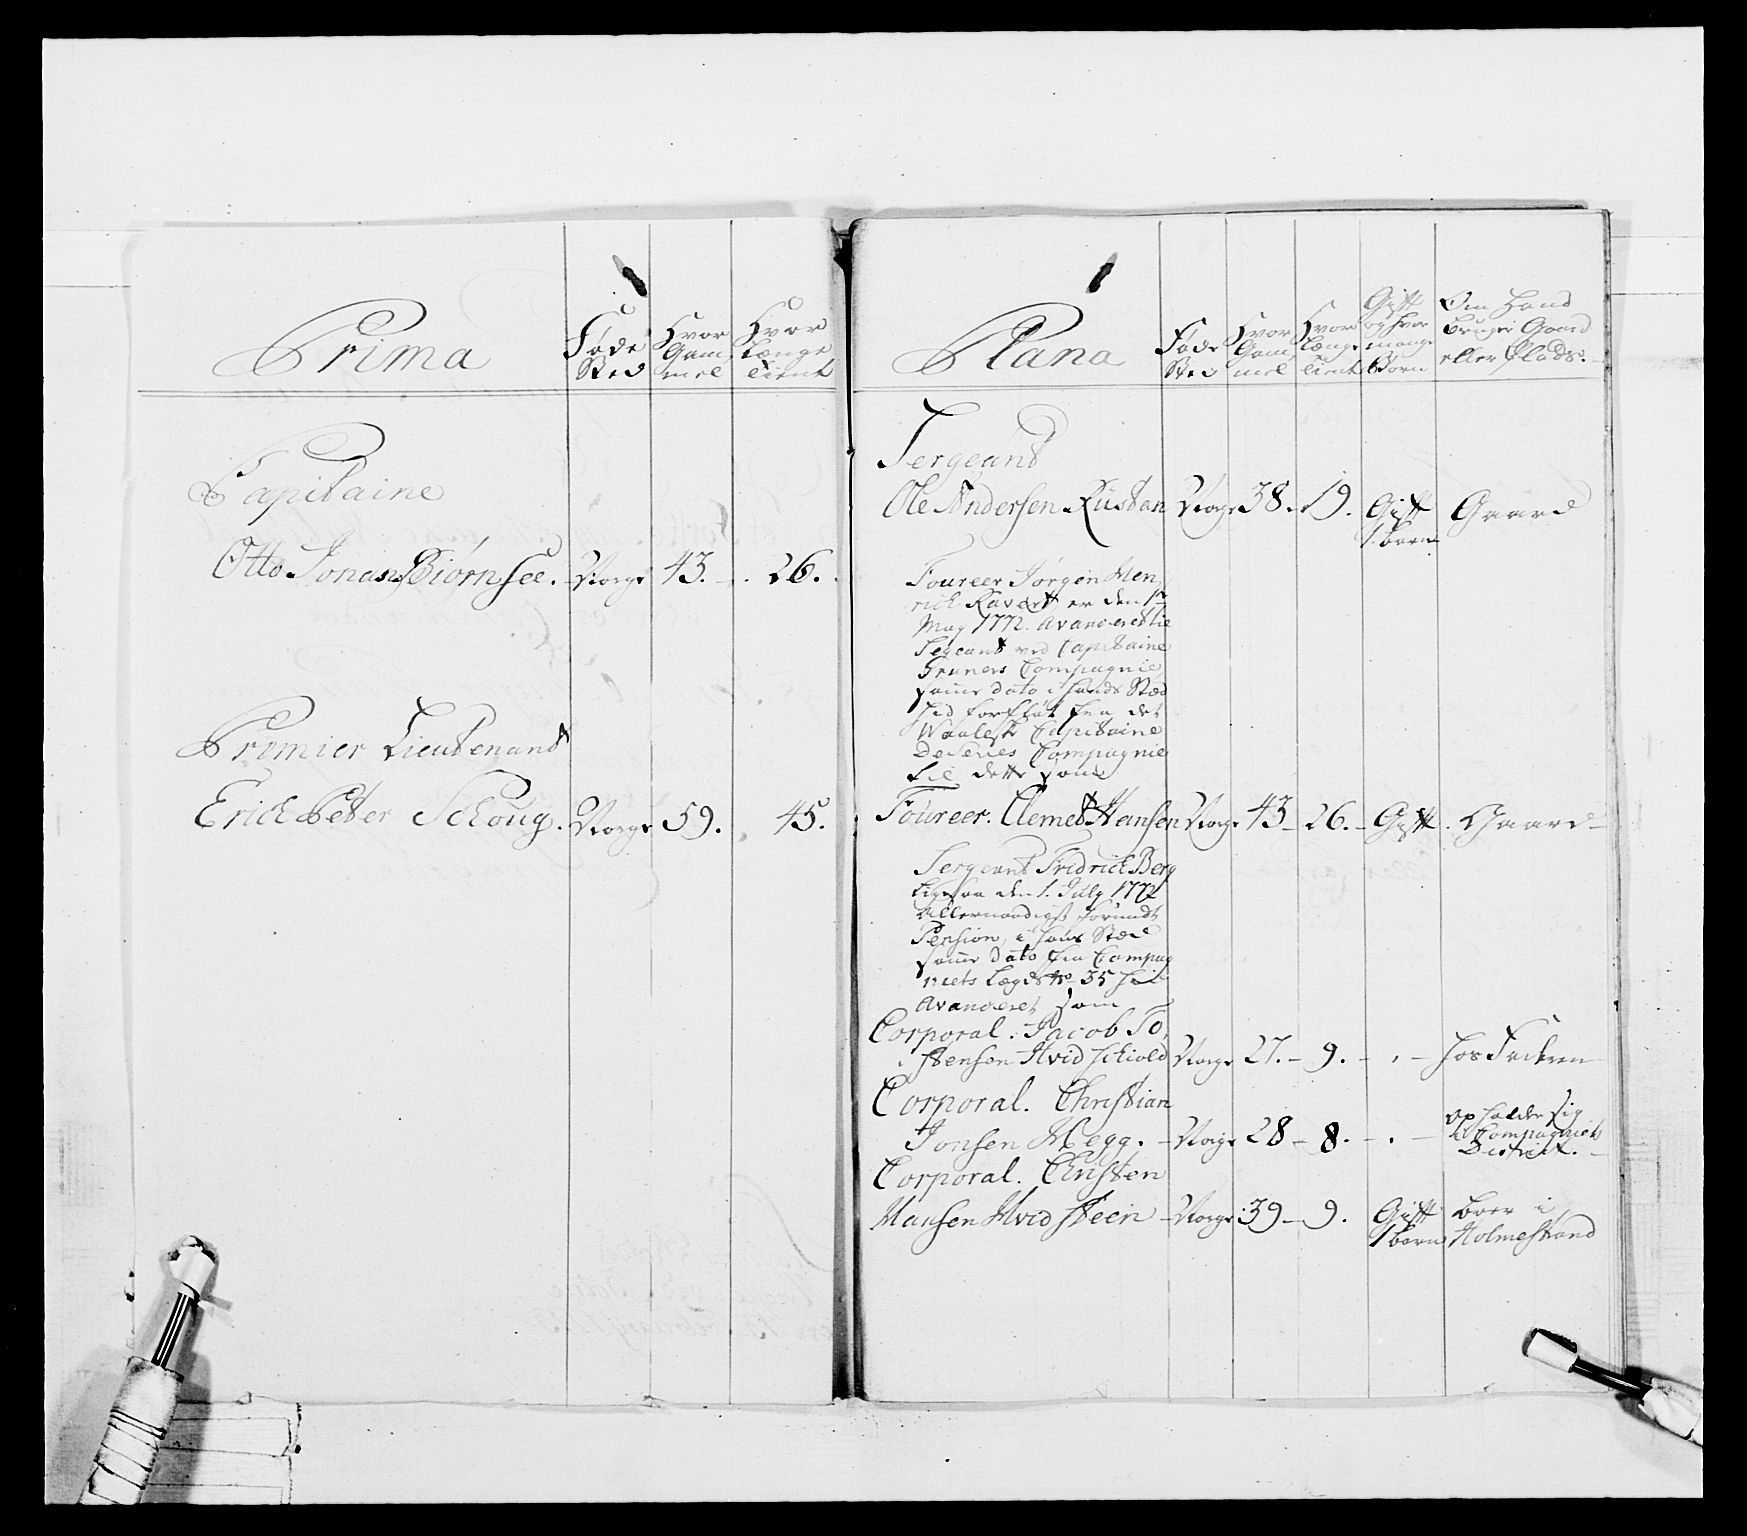 Prima
Føde
Sted
Hvor
Gam
mel
Hvor
Længe
tient
Capitaine
Otto Jonas Biørnsee. Norge 43. 26.
Premier Lieutenant
Erick Peter Schoug. Norge 59. 45.
Plana
Føde
Sted
Hvor
Gam
mel
Hvor
længe
tient
Gift
og hvor
mange
Børn
Om Hand
bruger Gaard
eller Plads.
Sergeant
Ole Andersen Rustan Norge 38. 19. Gift Gaard
1 barn
Foureer Jørgen Hen
rick Ravert er den 1te
May 1772. Avanceret til
Segeant ved Capitaine
Gruners Compagnie
samme dato i hands Stæd
hid forfløt fra det
Waalesk Capitaine
De Seves Compagnie
til dette som
Foureer. Clemet Hansen Norge 43 - 26. - Gift. Gaard -
Sergeant Fredrick Berg
ligesaa den 1. July 1772
Allernaadigst forundt
Pension, i hans Stæd
samme Dato fra Compag
niets Lægd No 35 hid
Avanceret som
Corporal. Jacob To,
stensen Hvidschiold Norge 27. - 9. - . - hos Faderen
Corporal. Christian
Jonsen Hegg. - Norge 28 - 8. - . -
opholder sig
i Compagniets
District.
Corporal. Christen
Hansen Hvidsteen - Norge 39 - 9. Gift boer i
1 barn Holmestrand